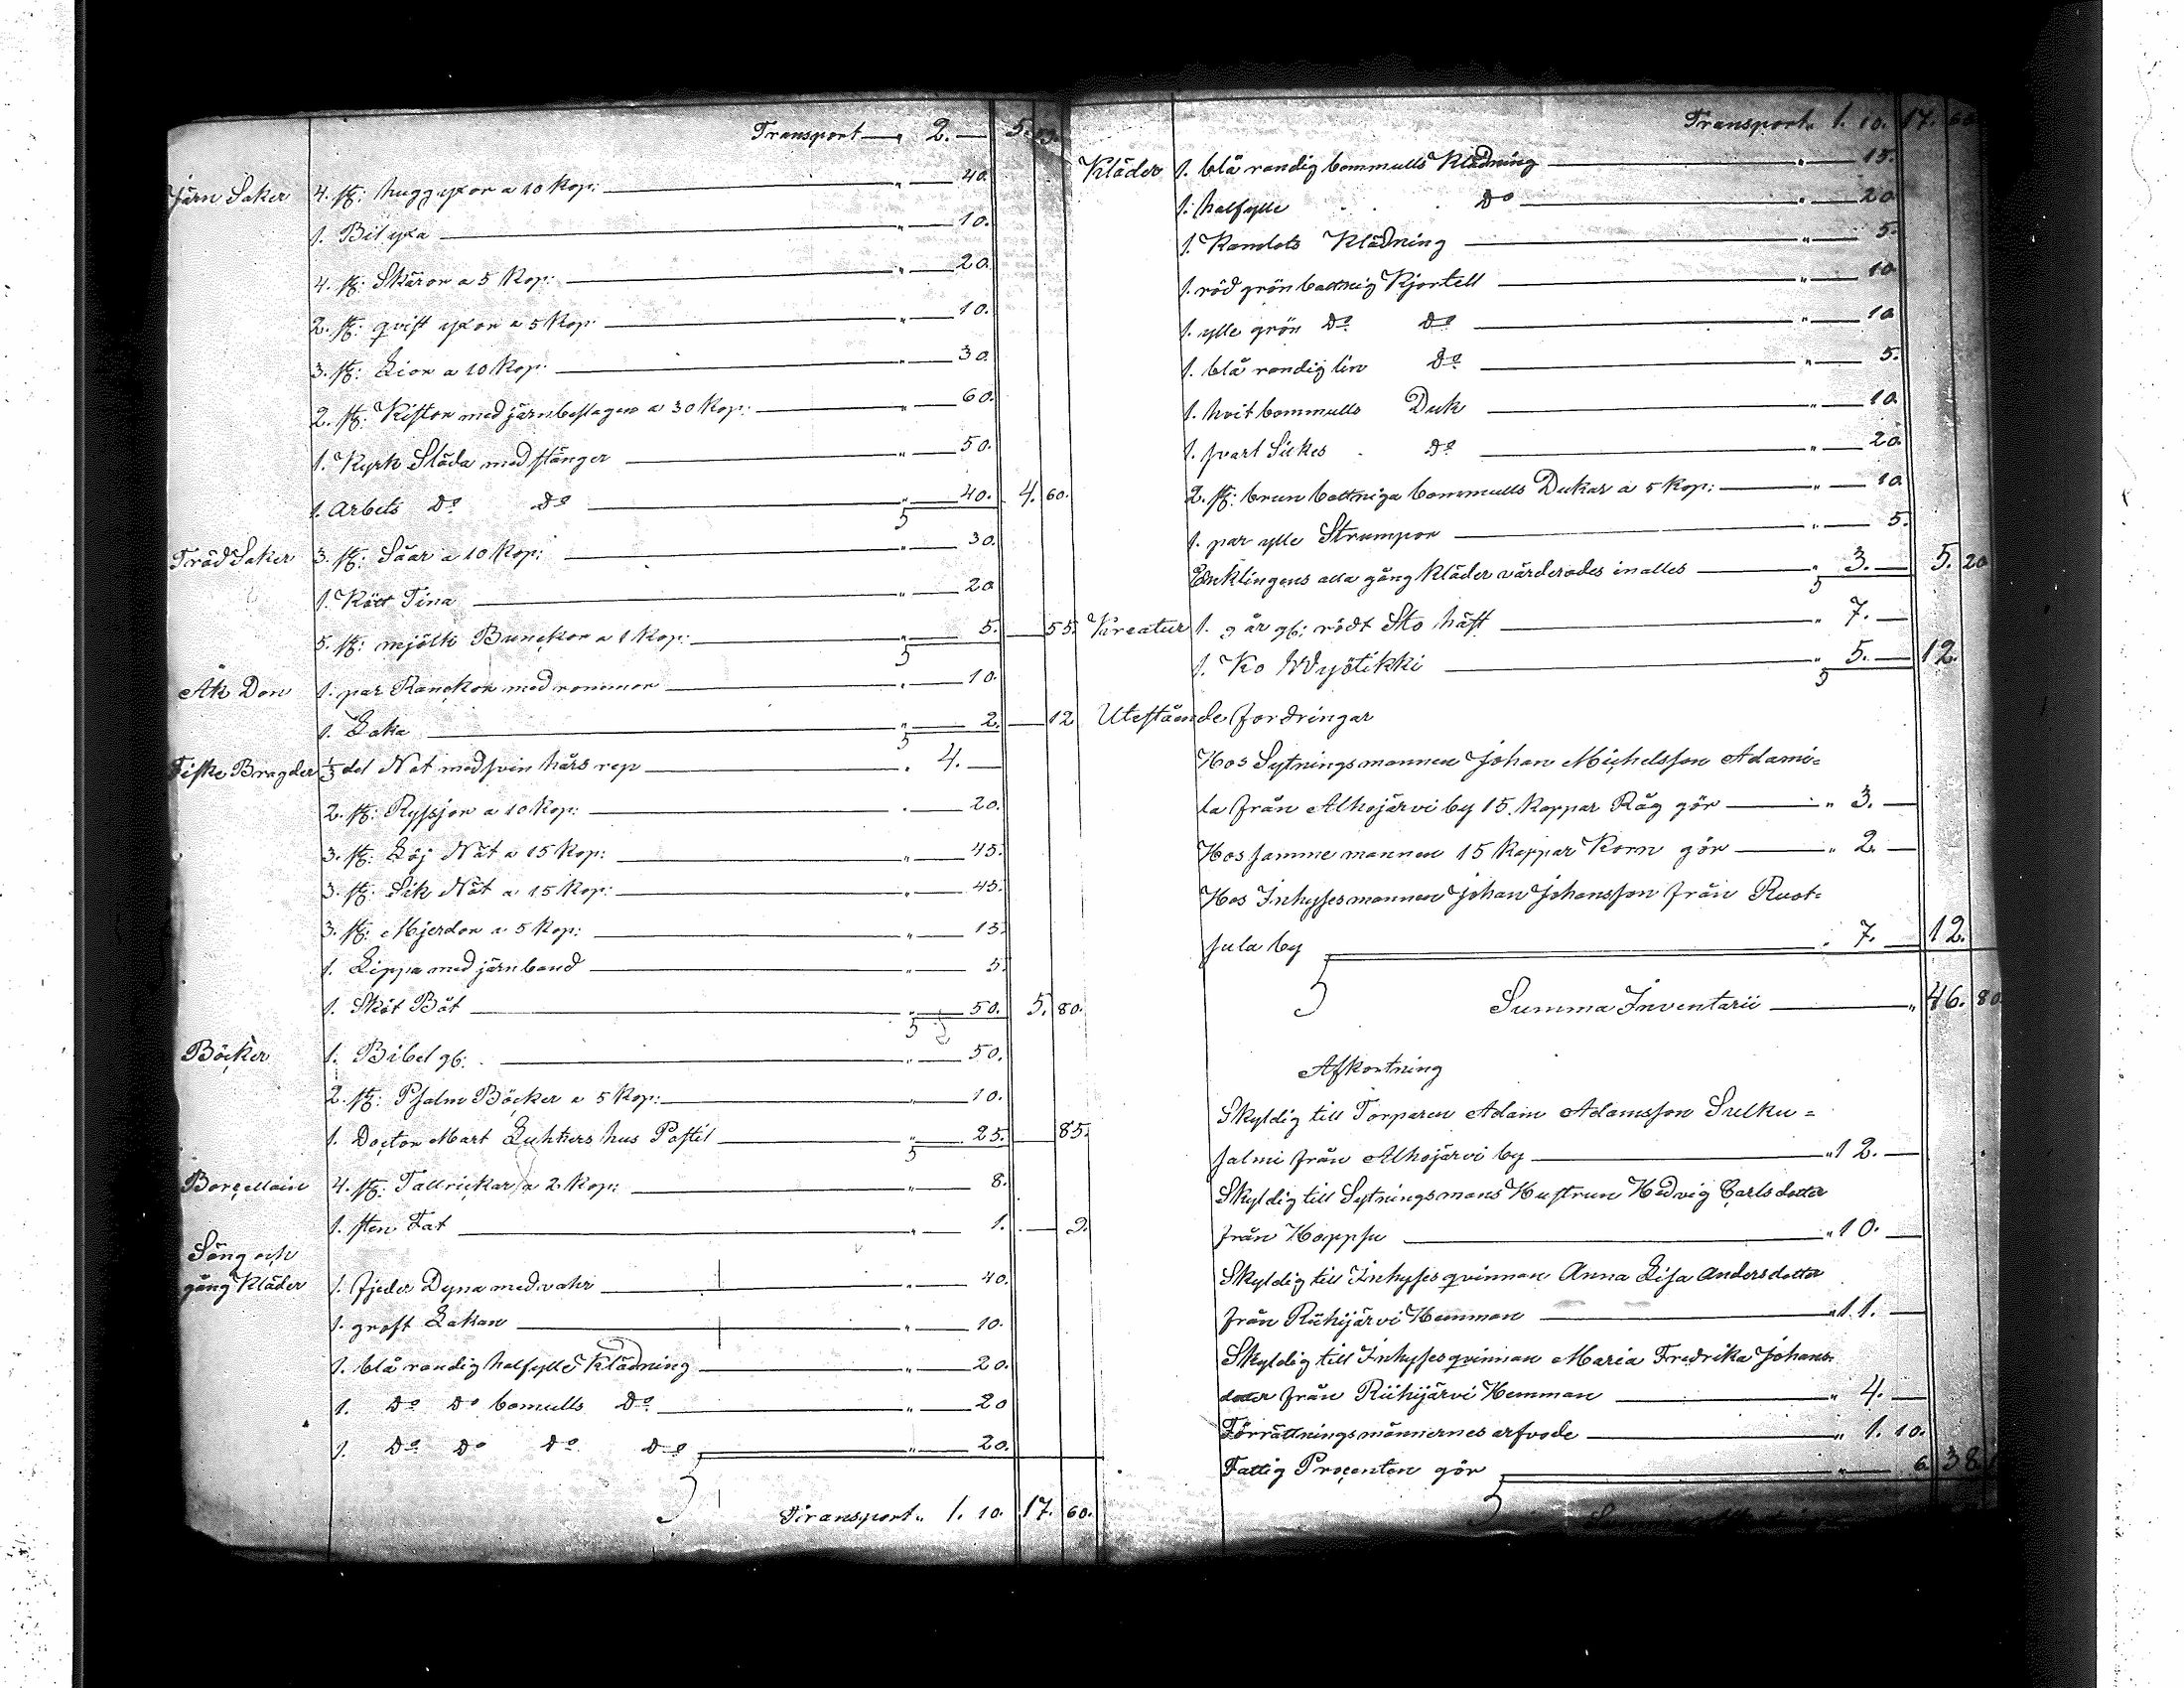 Transport — " 2. — 5. 09.
Järn Saker 4. st: huggyxor a 10 Kop: — " — 40.
1. Bilyxa — " — 10.
4. st: Skäror a 5 Kop: — " — 20.
2. st: qvist yxor a 5 Kop: — " — 10.
3. st: Lior a 10 Kop: — " — 30.
2. st: Kistor med järnbeslagen a 30 Kop: — " — 60.
1. Kyrk Släda med stänger — " — 50.
1. Arbets Do Do — " — 40. 4. 60.
Träd Saker 3. st: Såar a 10 Kop: — " — 30.
1. Kött Tina — " — 20
5. st: mjölk Bunckor a 1 Kop: — " — 5. — 55.
Åk Don 1. par Ranckor med rommor — " — 10.
1. Laka — " — 2. — 12
Fiske Bragder 1/3 del Not med svin hårs rep — " 4. —
2. st: Ryssjor a 10 Kop: — " — 20.
3. st: Löj Nät a 15 Kop: — " — 45.
3. st: Sik Nät a 15 Kop: — " — 45.
3. st: Mjerdor a 5 Kop: — " — 15.
1. Lippa med järnband — " — 5.
1. Sköt Båt — " — 50. 5. 80.
Böcker 1. Bibel gb: — " — 50.
2. st: Psalm Böcker a 5 Kop: — " — 10.
1. Doctor Mart Luhters hus Postil — " — 25. — 85.
Borcellain 4. st: Tallrickar a 2 Kop: — " — 8.
1. sten Fat — " — 1. — 9.
Säng och
gång Kläder 1. fjeder Dyna med vahr — " — 40.
1. groft Lakan — " — 10.
1. blå randig halfylle Klädning — " — 20.
1. Do Do bomulls Do — " — 20
1. Do Do Do Do — " — 20.
Transport " 1. 10. 17. 60.
Transport " 1. 10. 17. 60
Kläder 1. blå randig bommulls Klädning — " — 15.
1. halfylle Do — " — 20
1. Kamlots Klädning — " — 5.
1. röd grön bottnig Kjortell — " — 10
1. ylle grön Do Do — " — 10
1. blå randig lin Do — " — 5.
1. hvit bommulls Duk — " — 10.
1. svart Silkes Do — " — 20
2. st: brun bottniga bommulls Dukar a 5 Kop: — " — 10
1. par ylle Strumpor — " — 5.
Enklingens alla gång kläder värderades inalles — " 3. — 5. 20
Kreatur 1. 9 år gb: rödt Sto häst — " 7. —
1. Ko Wyötikki — " 5. — 12.
Utestående fordringar
Hos Sytningsmannen Johan Michelsson Adami=
la från Alhojärvi by 15. Kappar Råg gör — " 3. —
Hos samme mannen 15 Kappar Korn gör — " 2. —
Hos Inhysesmannen Johan Johansson från Ruot=
sula by — " 7. — 12.
Summa Inventarii — " 46. 80
Afkortning
Skyldig till Torparen Adam Adamsson Sulku=
salmi från Alhojärvi by — " 12. —
Skyldig till Sytningsmans Hustrun Hedvig Carlsdotter
från Hoppsu — " 10. —
Skyldig till Inhyses qvinnan Anna Lisa Andersdotter
från Riihijärvi Hemman — " 11. —
Skyldig till Inhyses qvinnan Maria Fredrika Johans=
dotter från Riihijärvi Hemman — " 4. —
Förrättningsmännernes arfvode — " 1. 10.
Fattig Procenten gör — " — 6. 38